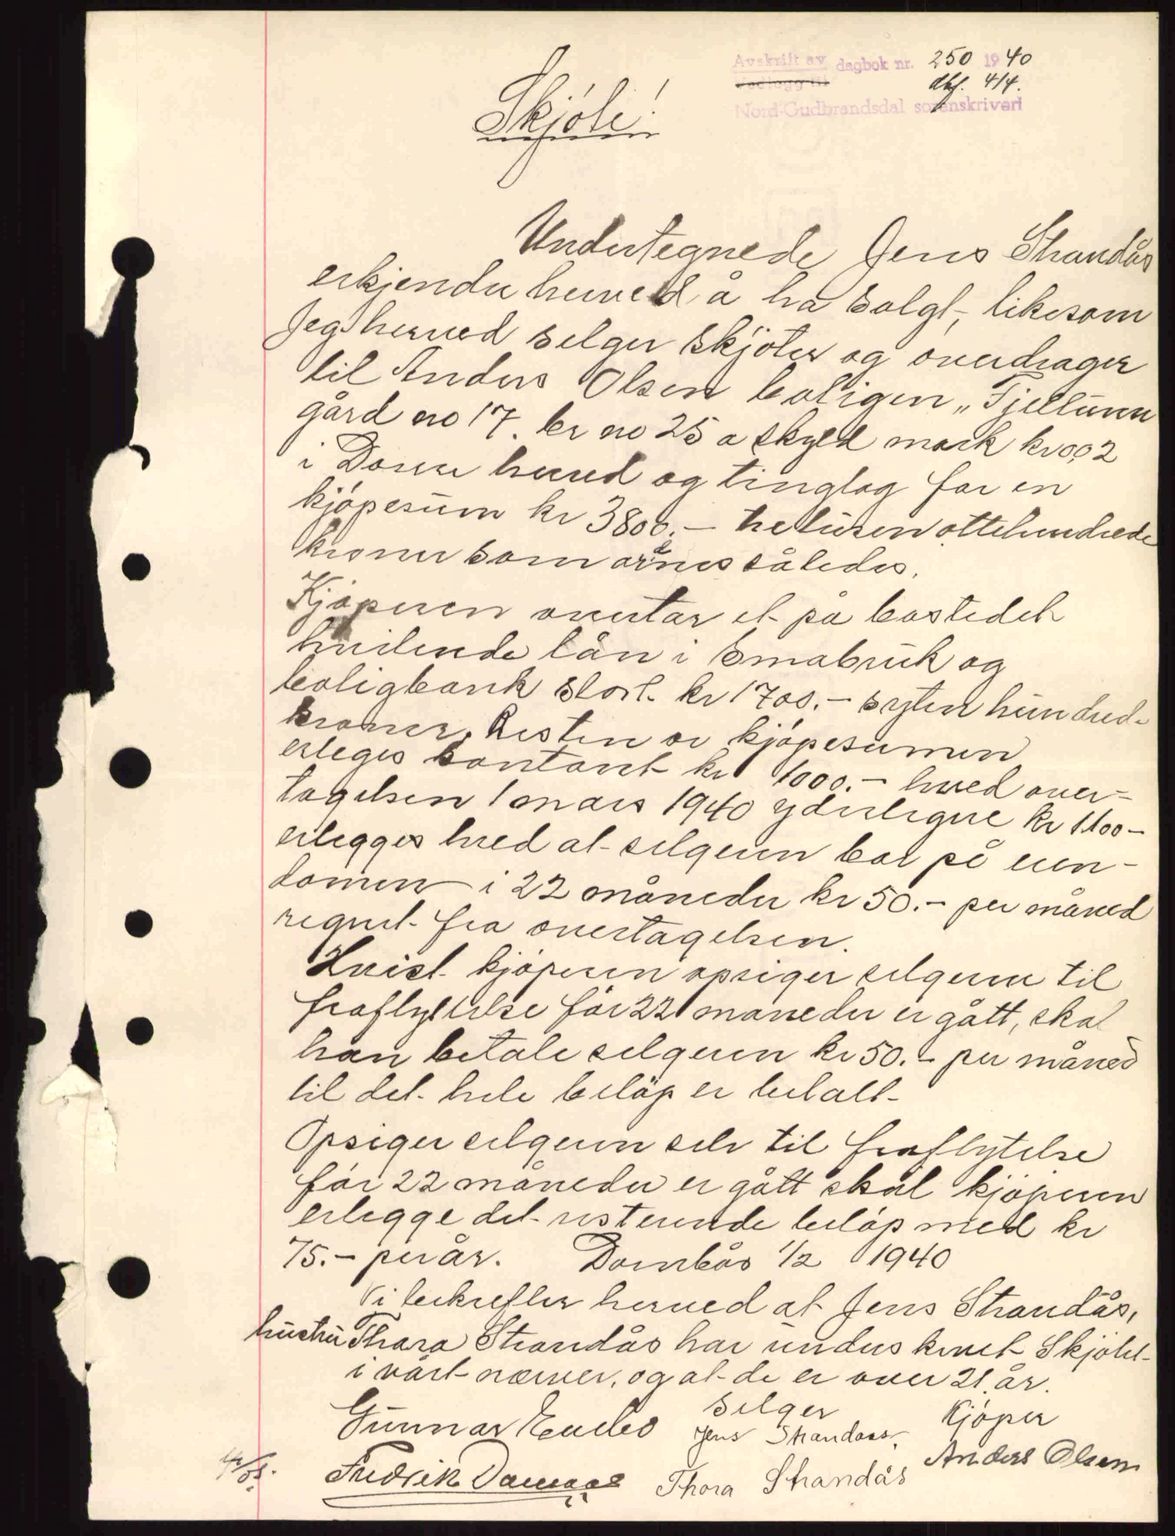 Avskrift av dagbok nr. 250 1940
Vedlegg til dbf. 414.
Nord-Gudbrandsdal sorenskriveri
Skjöte!
Undertegnede Jens Strandås
erkjender herved å ha solgt, likesom
jeg herved selger skjöter og overdrager
til Anders Olsen boligen „Fjellunn
gård no 17. br no 25 a skyld mark kr 0,02
i Dovre herred og tinglag for en
kjöpesum kr 3800.- tretusen ottehundrede
kroner som ornes således.
Kjöperen overtar et på bostedet
hvilende lån i Småbruk og
boligbank stort kr 1700.- sytten hundrede
kroner. Resten av kjöpesumen
erleges kontant kr 1000.- hved over=
tagelsen 1 mars 1940 yderligere kr 1100-
erlegges hved at selgeren bor på eien-
domen i 22 måneder kr 50.- per måned
regnet fra overtagelsen.
Hvist kjöperen opsiger selgeren til
fraflyttelse för 22 maneder er gått, skal
han betale selgeren kr 50.- per måned
til det hele belöp er betalt-
Opsiger selgeren selv til fraflytelse
för 22 måneder er gått skal kjöperen
erlegge det resterende belöp med kr
75.- per år. Dombås 1/2 1940
Vi bekrefter herved at Jens Strandås,
hustru Thora Strandås har underskrevet Skjötet
i vårt nærver, og at de er over 21 år.
Selger Kjöper
Gunnar Jens Strandaas, Anders Olsen
Fredrik Thora Strandås